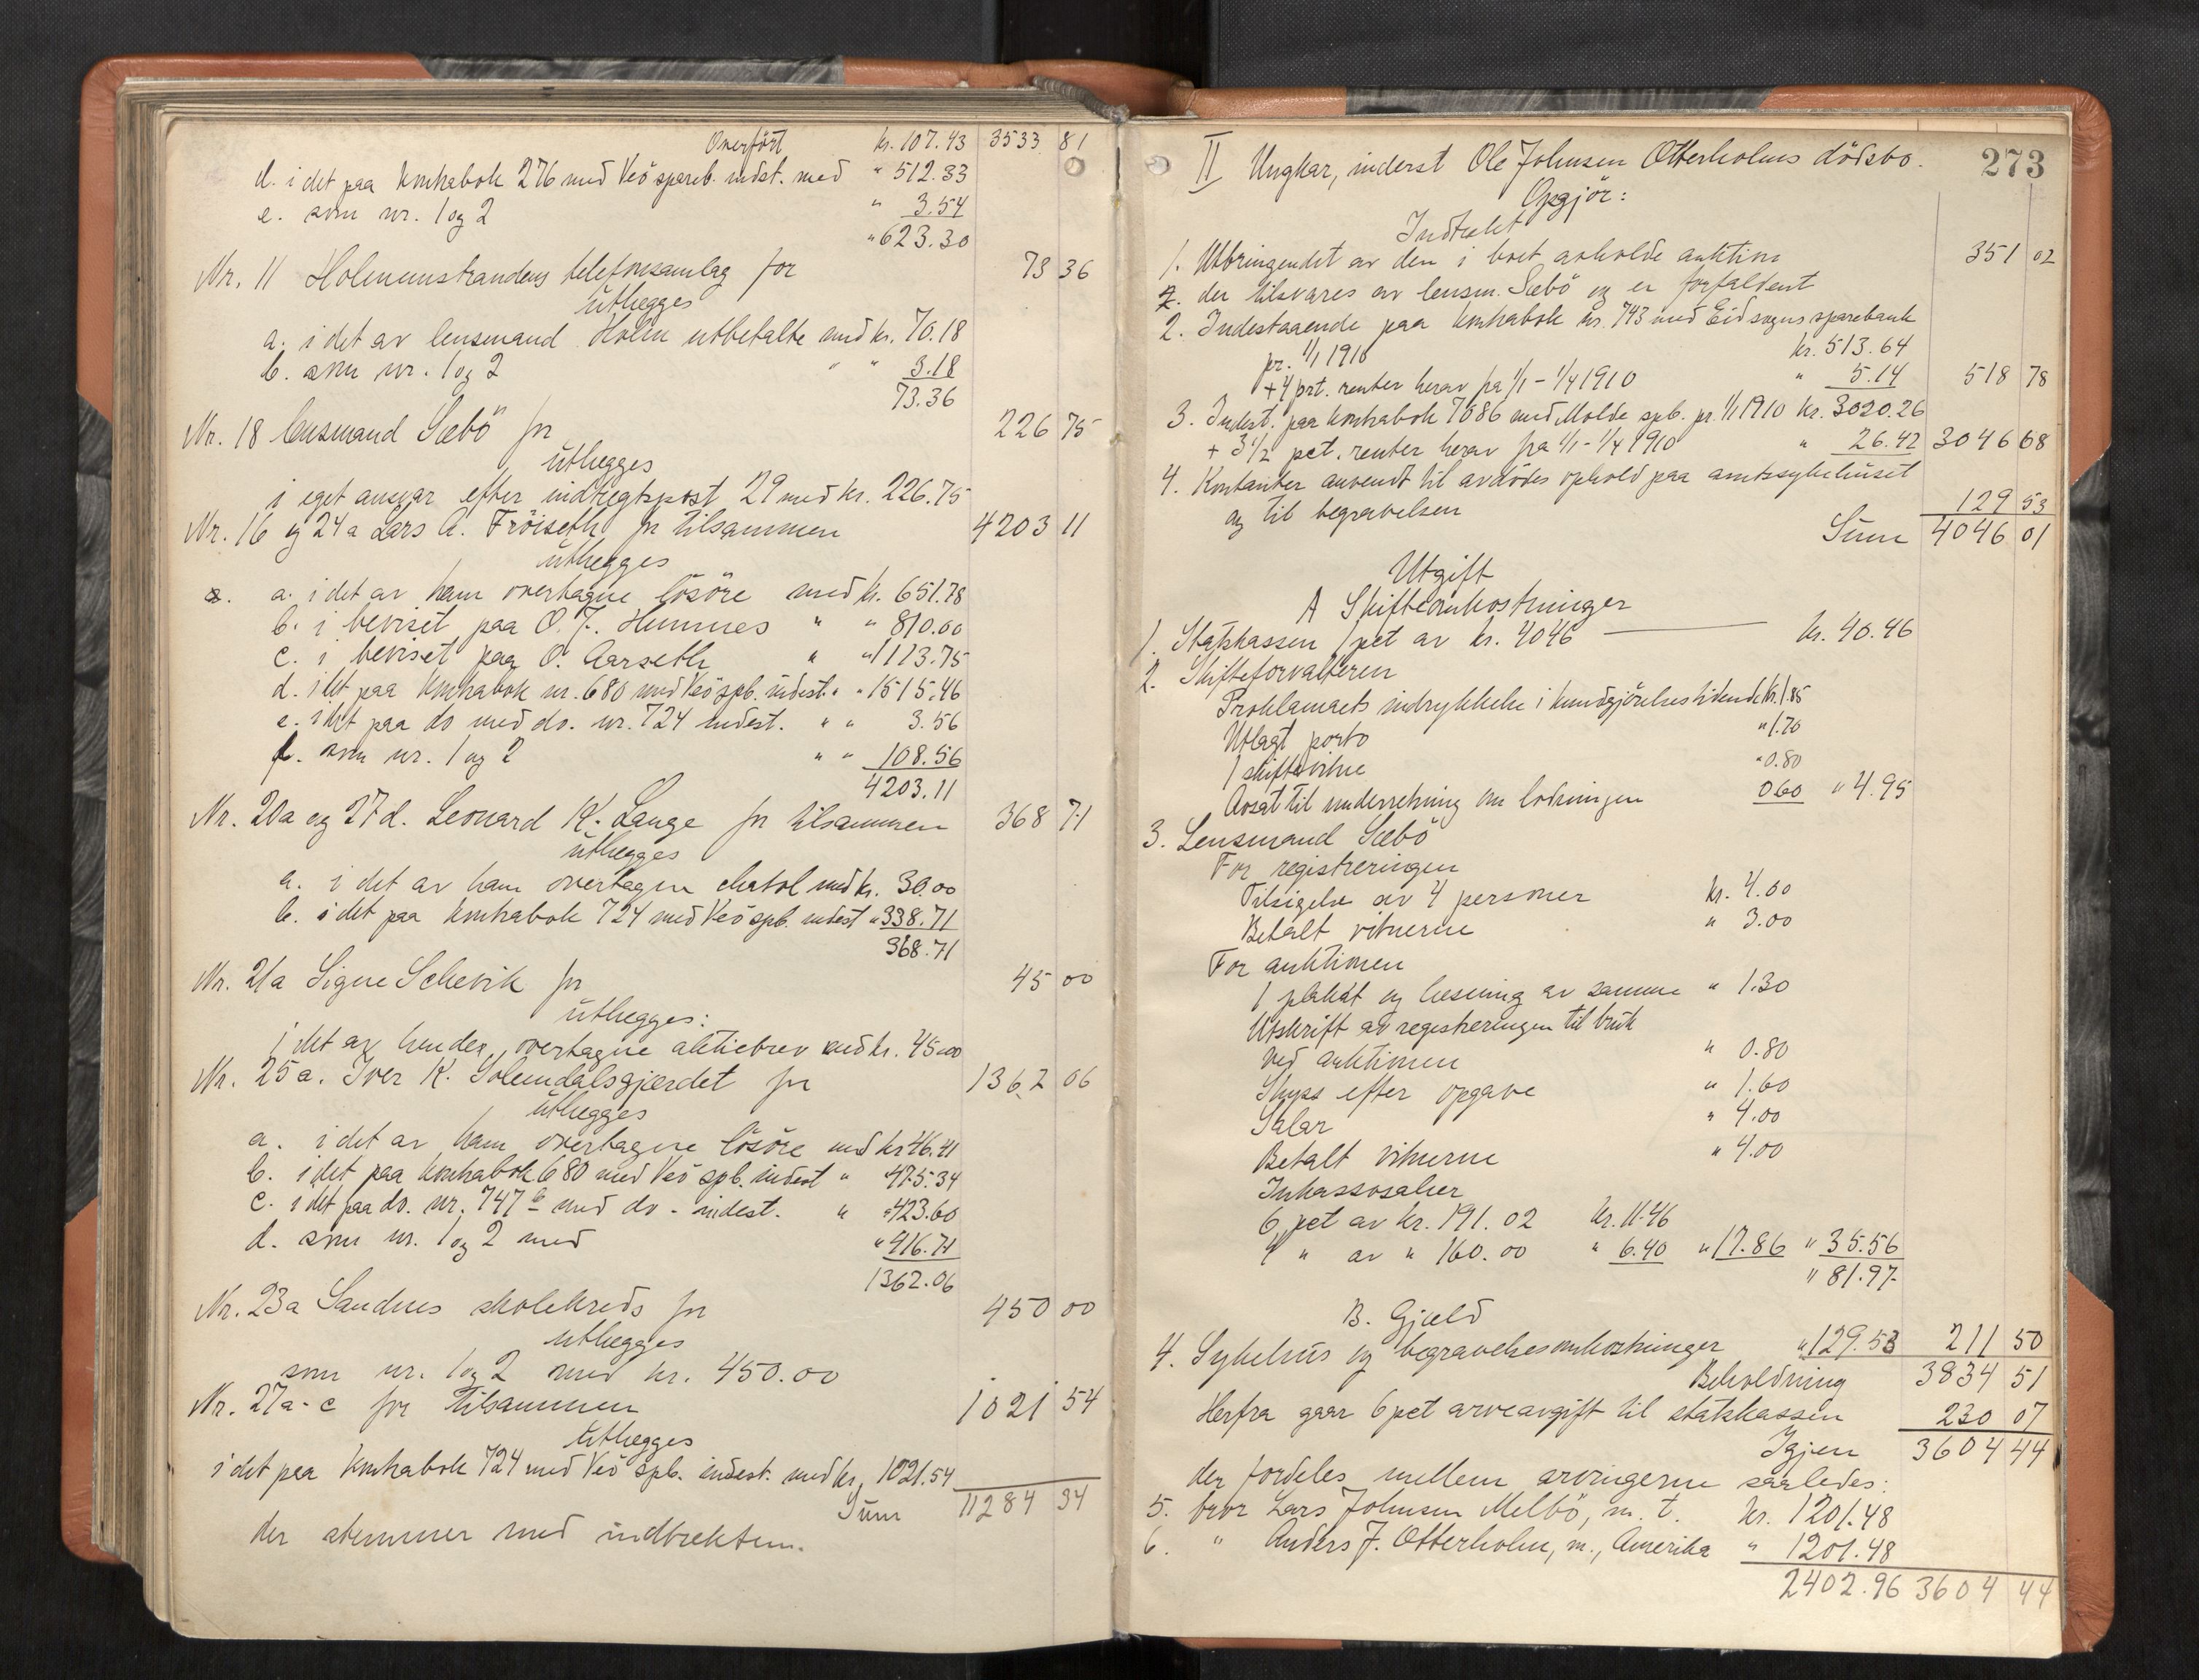 Overført kr. 107.43 3533 81
d. i det paa kontrabok 276 med Veö spareb. indst. med " 512.33
e. som nr. 1 og 2 " 3.54
" 623.30
Nr. 11 Holmemstrandens telefonsamlag for 73 36
utlægges
a. i det av lensmand Holm utbetalte med kr. 70.18
b. som nr. 1 og 2 " " 3.18
73.36
Nr. 18 lensmand Sæbö for 226 75
utlægges
i eget ansvar efter indtegtspost 29 med kr. 226.75
Nr. 16 og 24a Lars A. Fröiseth for tilsammen 4203 11
utlægges
a. i det av ham overtagne lösöre med kr. 651.78
b. i beviset paa O. J. Hunnes " " 810.00
c. i beviset paa O. Aarseth " " 1113.75
d. i det paa kontrabok nr. 680 med Veö spb. indest. " " 1515.46
e. i det paa do med do. nr. 724 indest. " " 3.56
f. som nr. 1 og 2 " " 108.56
4203.11
Nr. 20a og 27d. Leonard K. Lange for tilsammen 368 71
utlægges
a. i det av ham overtagen chatol med kr. 30.00
b. i det paa kontrabok 724 med Veö spb. indest " 338.71
368.71
Nr. 21a Signe Schevik for 45 00
utlægges:
i det av hende overtagne aktiebrev med kr. 45.00
Nr. 25a. Iver K. Solemdalsgjærdet for 1362 06
utlægges
a. i det av ham overtagne lösöre med kr 46.41
b. i det paa kontrabok 680 med Veö spb. indest " 475.34
c. i det paa do. nr. 747 b med do - indest. " " 423.60
d. som nr. 1 og 2 med " 416.71
1362.06
Nr. 23a Sandnes skolekreds for 450 00
utlægges
som nr. 1 og 2 med kr. 450.00
Nr. 27a-c for tilsammen 1021 54
utlægges
i det paa kontrabok 724 med Veö spb. indest. med kr. 1021.54
Sum 11284 34
der stemmer med indtækten.
273
II Ungkar, inderst Ole Johnsen Otterholms dödsbo.
Opgjör:
Indtækt
1. Utbringendet av den i boet avholdte auktion 351 02
der tilsvares av lensm. Sæbö og er forfaldent
2. Indestaaende paa kontrabok nr. 743 med Eidsvaags sparebank
pr. 1/1 1910 kr. 513.64
+ 4 prt. renter herav fra 1/1 - 1/4 1910 " 5.14 518 78
3. Indest. paa kontrabok 7086 med Molde spb. pr. 1/1 1910 kr. 3020.26
+ 3 1/2 pct. renter herav fra 1/1 - 1/4 1910 " 26.42 3046 68
4. Kontanter anvendt til avdödes ophold paa amtssykehuset
og til begravelsen 129 53
Sum 4046 01
Utgift
A Skifteomkostninger
1. Statskassen 1 pct av kr. 4046 kr. 40.46
2. Skifteforvalteren
Proklamaets indrykkelse i kundgjörelsestidende kr. 1.85
Utlagt porto " 1.70
1 skiftevitne " 0.80
Avsat til underretning om lodningen 0.60 " 4.95
3. Lensmand Sæbö
For registreringen
Tilsigelse av 4 personer kr. 4.00
Betalt vitnerne " 3.00
For auktionen
1 plakat og læsning av samme " 1.30
Utskrift av registreringen til bruk
ved auktionen " 0.80
Skyss efter opgave " 1.60
Salær " 4.00
Betalt vitnerne " 4.00
Inkassosalær
6 pct av kr. 191.02 kr. 11.46
4 " av " 160.00 " 6.40 " 17.86 " 35.56
" 81.97
B. Gjæld
4. Sykehus og begravelsesomkostninger " 129.53 211 50
Beholdning 3834 51
Herfra gaar 6 pct arveavgift til statskassen 230 07
Igjen 3604 44
der fordeles mellem arvingerne saaledes:
5. bror Lars Johnsen Melbö, m. t. kr. 1201.48
6. " Anders J. Otterholm, m., Amerika " 1201.48
2402.96 3604 44